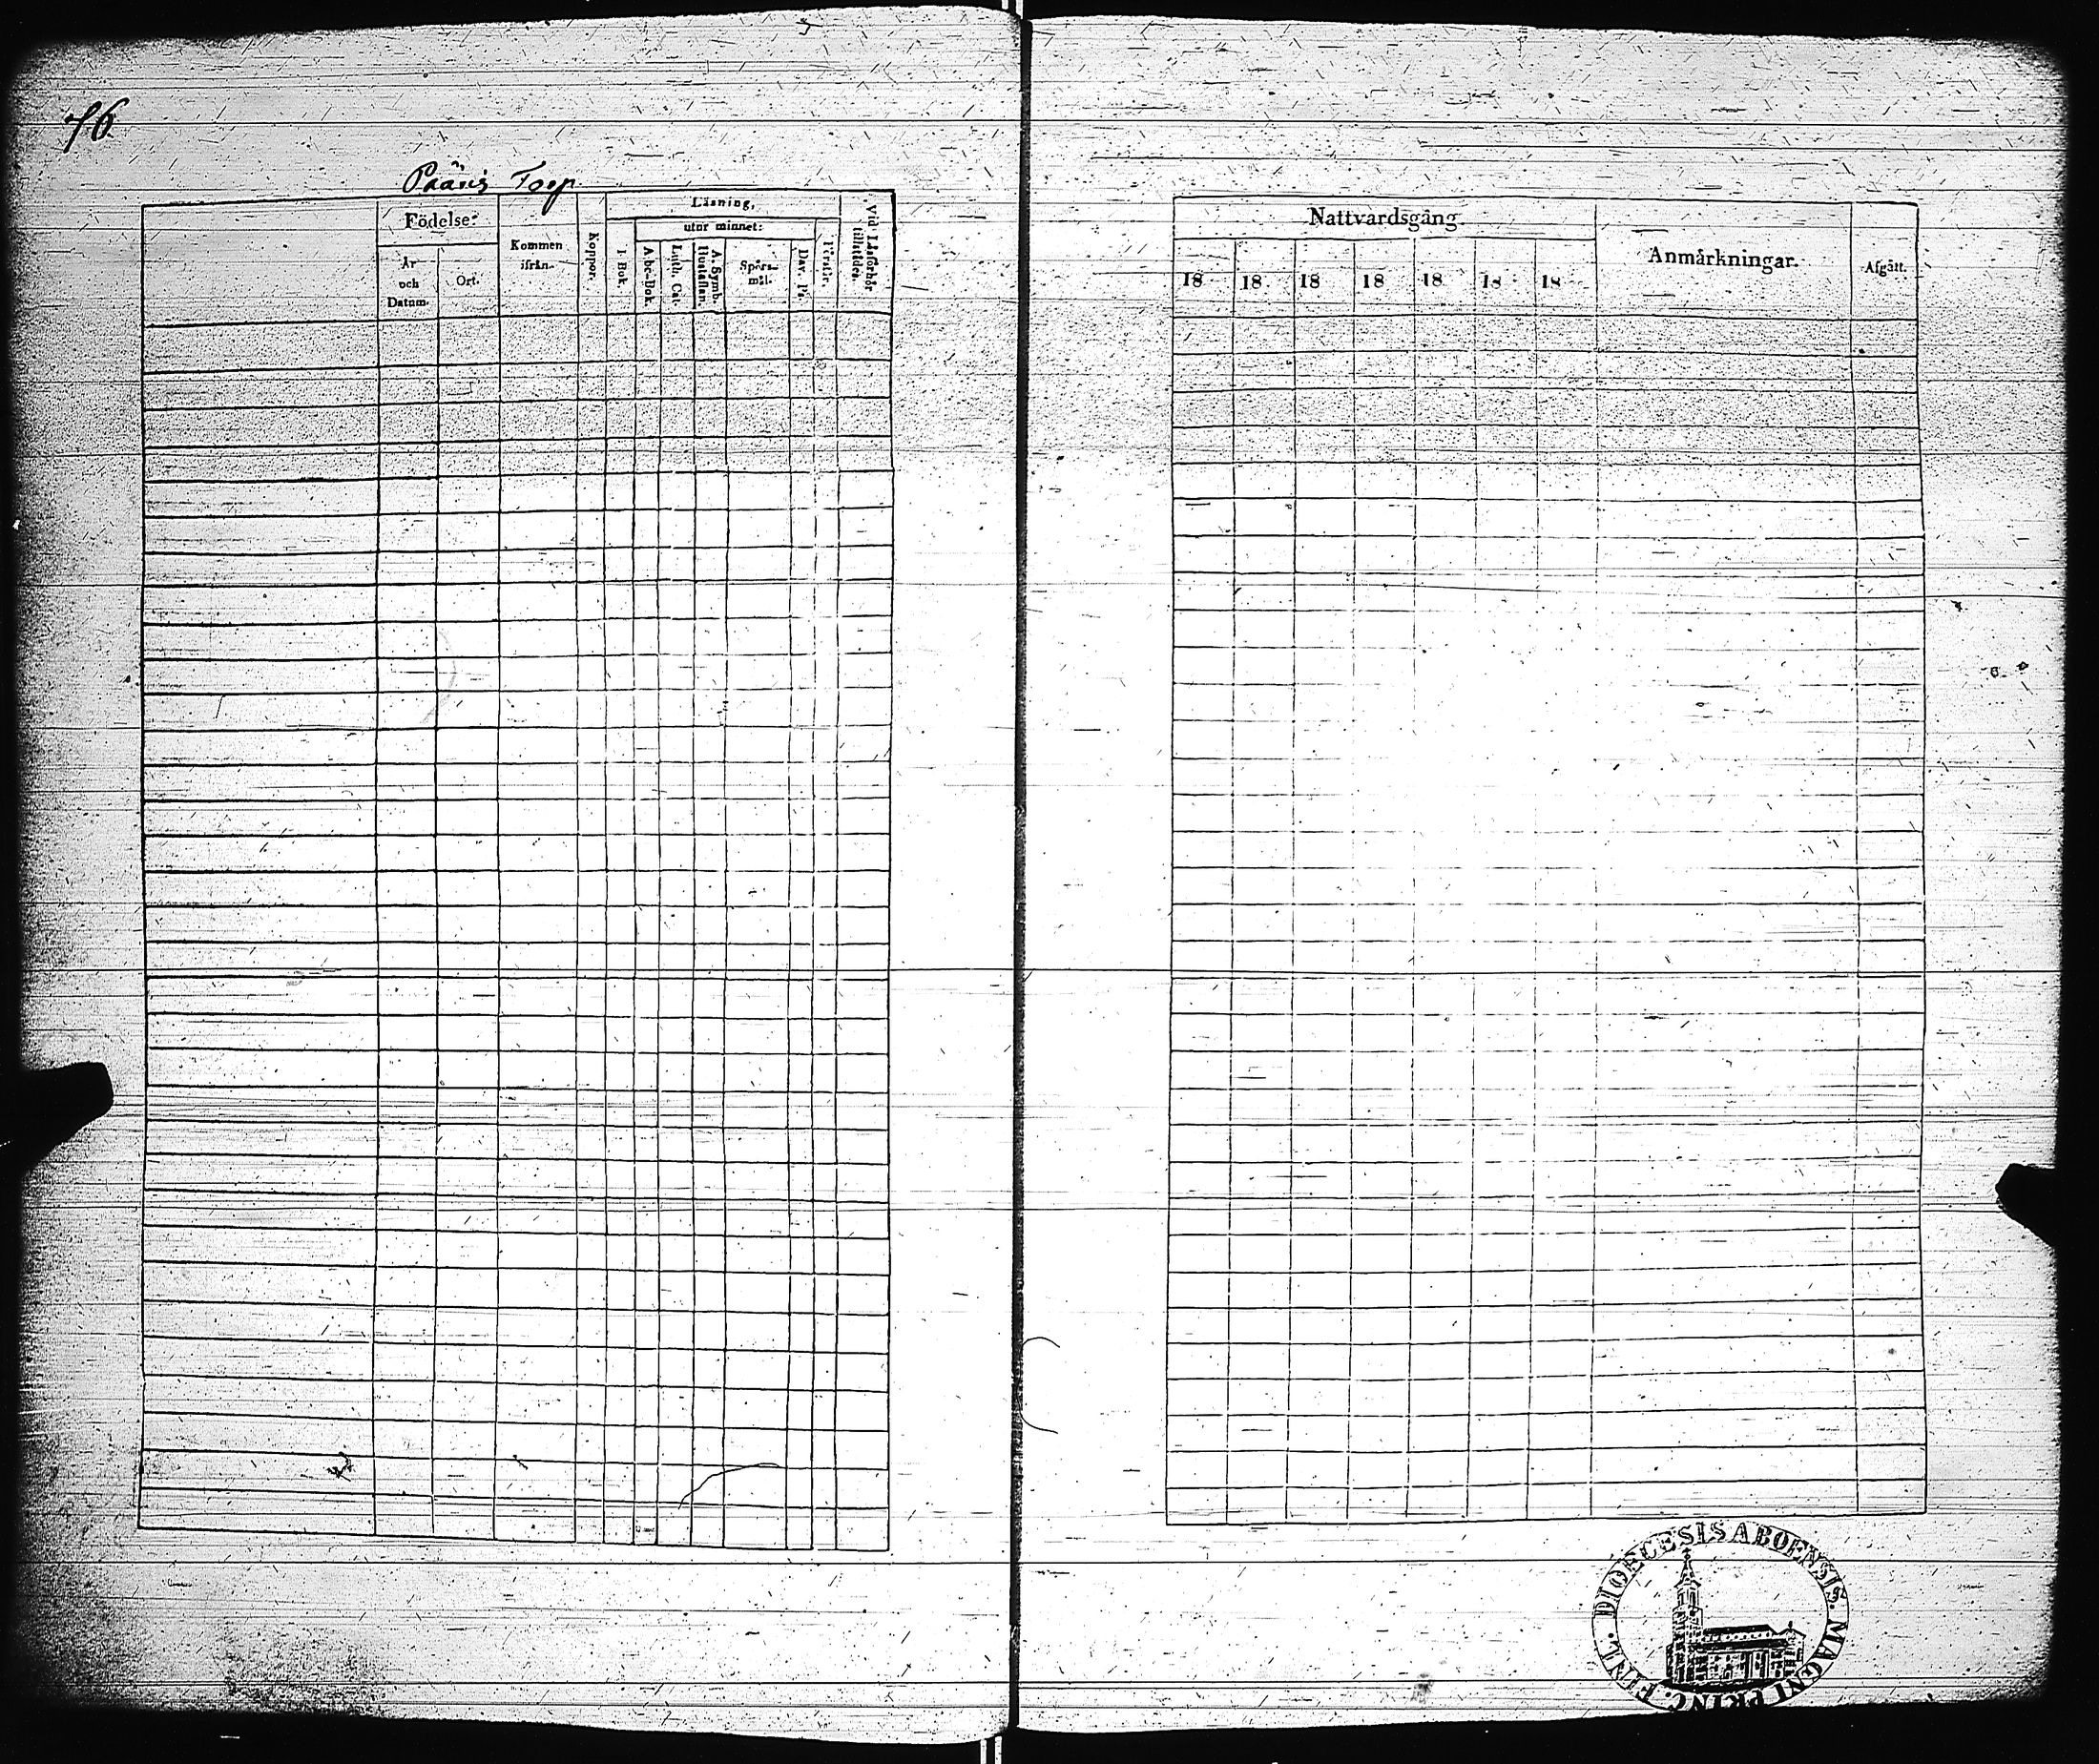 76
Paavis Torp
Födelse:
År
och
Datum.
Ort.
Kommen
ifrån.
Koppor.
Läsning,
I Bok.
utur minnet:
Abc-Bok.
Luth. Cat.
A. Symb.
Hustaflan.
Spörs-
mål.
Dav. Ps.
Förstår.
Vid Läsförhör
tillstädes.
Nattvardsgång.
18 18 18 18 18 18 18
Anmärkningar.
Afgått.
DIOECESIS ABOENSIS. MAGNI PRINC. FINL.